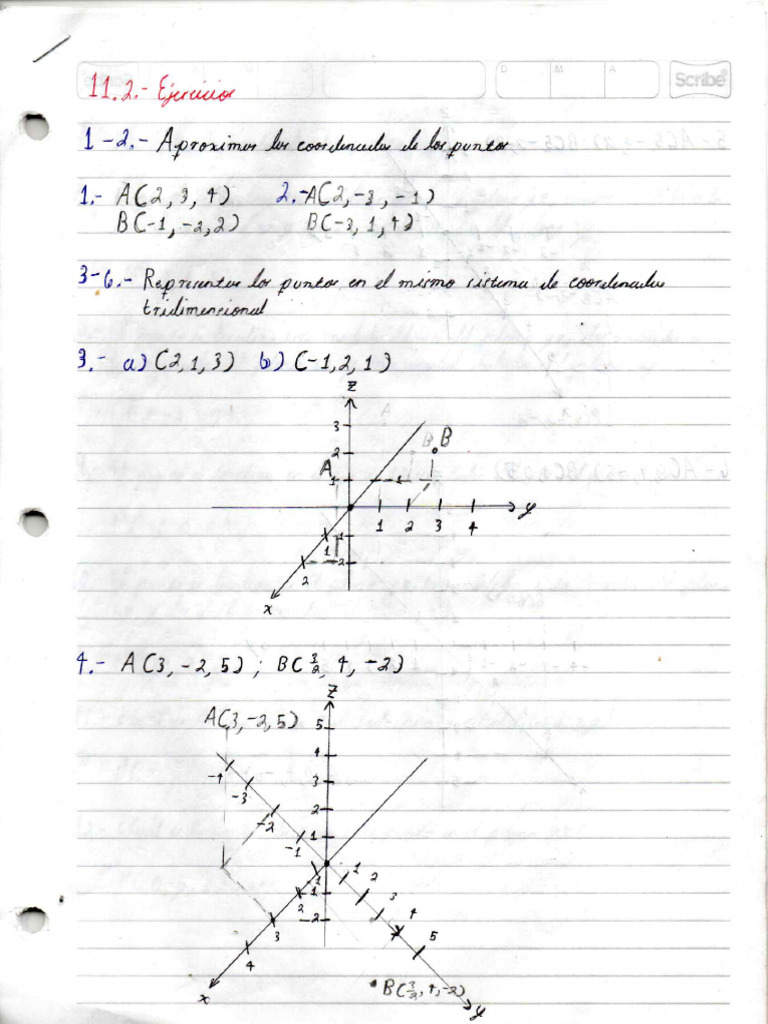 D M A
Scribe
11.2.- Ejercicios
1-2.- Aproximar las coordenadas de los puntos
1.- A(2, 3, 4) 2.- A(2, -3, -1)
B(-1, -2, 2) B(-3, 1, 4)
3-6.- Representar los puntos en el mismo sistema de coordenadas
tridimensional
3.- a) (2, 1, 3) b) (-1, 2, 1)
z
3
2 B B
A
1
1 2 3 4 y
1 -1
2 -2
x
4.- A(3, -2, 5) ; B(3/2, 4, -2)
z
A(3, -2, 5) 5
4
-4 3
-3
-2 2
-1 1
1 1 2
2 -1 3
3 -2 4
4 5
x B(3/2, 4, -2) y